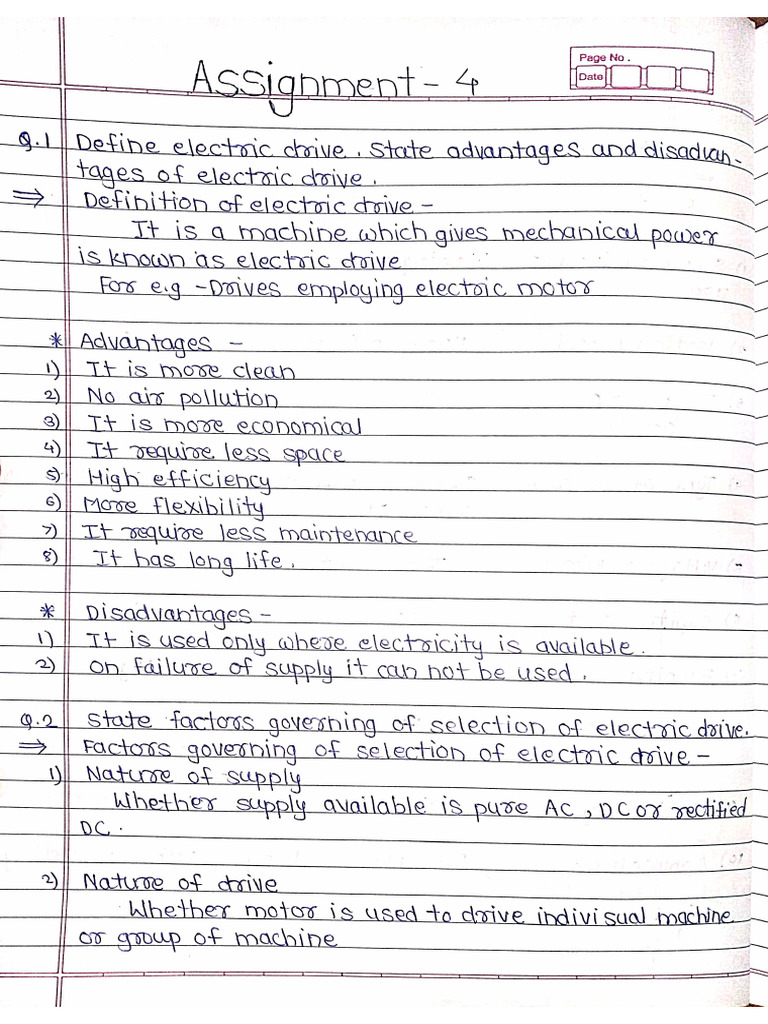 Assignment - 4
Page No.
Date
Q.1 Define electric drive. State advantages and disadvan-
tages of electric drive.
⇒ Definition of electric drive -
It is a machine which gives mechanical power
is known as electric drive
For e.g - Drives employing electric motor
* Advantages -
1) It is more clean
2) No air pollution
3) It is more economical
4) It require less space
5) High efficiency
6) More flexibility
7) It require less maintenance
8) It has long life.
* Disadvantages -
1) It is used only where electricity is available.
2) on failure of supply it can not be used.
Q.2 State factors governing of selection of electric drive.
⇒ Factors governing of selection of electric drive -
1) Nature of supply
Whether supply available is pure AC, DC or rectified
DC.
2) Nature of drive
Whether motor is used to drive indivisual machine
or group of machine